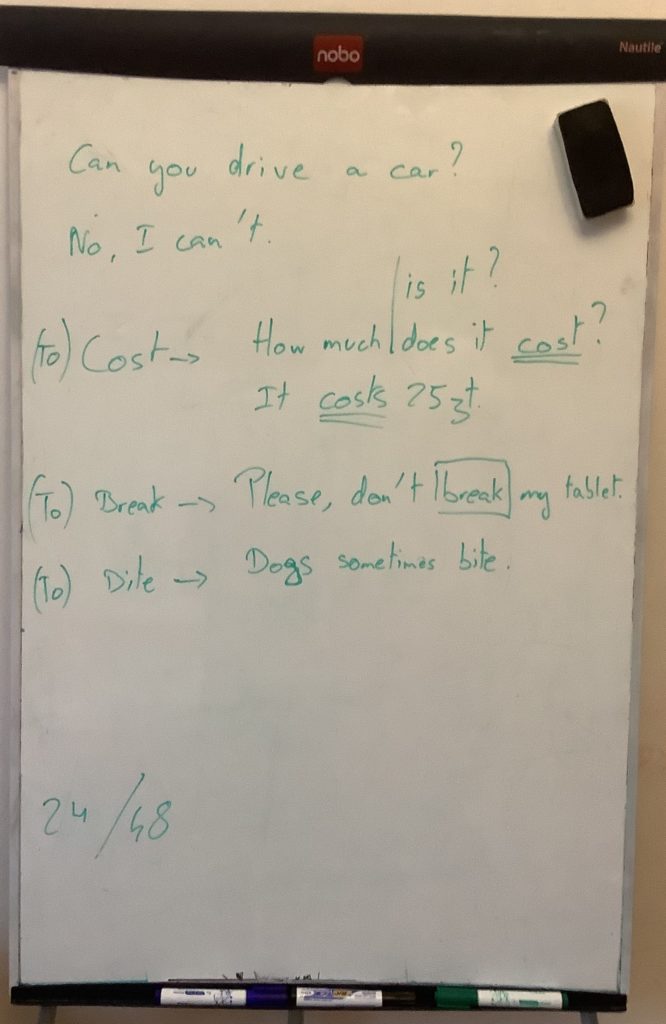 nobo
Nautile
Can you drive a car?
No, I can't.
is it?
(To) Cost → How much does it cost?
It costs 25 zł.
(To) Break → Please, don't break my tablet.
(To) Bite → Dogs sometimes bite.
24/48